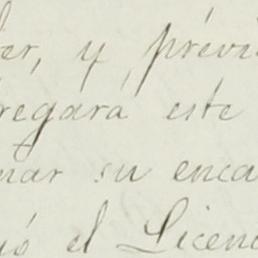 er, y prévi
regará este
nar su enca
ió el Licenc